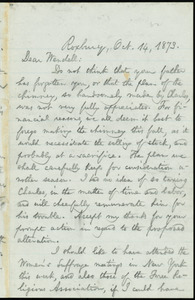 Roxbury, Oct. 14, 1873.
Dear Wendell:
Do not think that your father
has forgotten you, or that the plan of the
chimney, so handsomely made by Charley,
was not very fully appreciated. For fi-
nancial reasons, we all deem it best to
forego making the chimney this fall, as it
would necessitate the selling of stock, and
probably at a sacrifice. The plan we
shall carefully keep for consideration a-
nother season. I had no idea of so taxing
Charley, in the matter of time and labor,
and will cheerfully remunerate him for
his trouble. Accept my thanks for your
prompt action in regard to the proposed
alteration.
I should like to have attended the
Women's Suffrage meetings in New York
this week, and also those of the Free Re-
ligious Association, if I could have